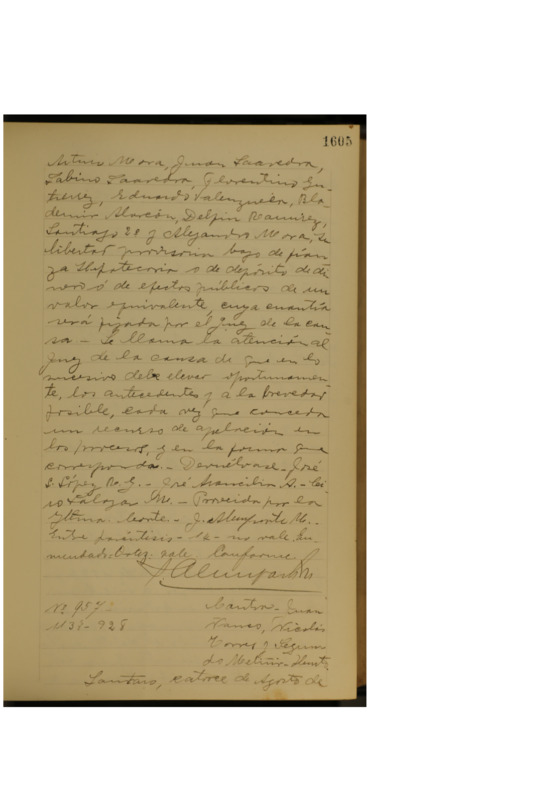 1605
Arturo Mora, Juan Saavedra,
Sabino Saavedra, Florentino Gu-
tierrez, Eduardo Valenzuela, Bla-
demir Alarcón, Delfin Ramirez,
Santiago 2º y Alejandro Mora, la
libertad provisoria bajo de fian-
za Hipotecaria o de depósito de di-
nero ó de efectos públicos de un
valor equivalente, cuya cuantía
será fijada por el Juez de la cau-
sa – Se llama la atención al
Juez de la causa de que en lo
sucesivo debe elevar oportunamen-
te, los antecedentes y a la brevedad
posible, cada vez que conceda
un recurso de apelación en
los procesos, y en la forma que
corresponda. – Devuélvase – José
S. López – José A. –
Salazar M. – Proveida por la
Iltma. Corte. – J. M. –
Entre paréntesis – la – no vale. En-
mendado vale Conforme

Nº 957
M 38 – 928
Contra – Juan
Nicolás
Torres y Segun-
do
Lautaro, catorce de Agosto de